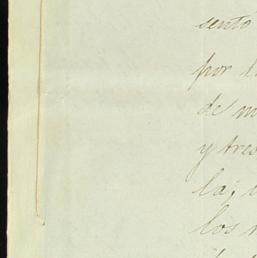 sento
por l
de m
y tres
la; 
los